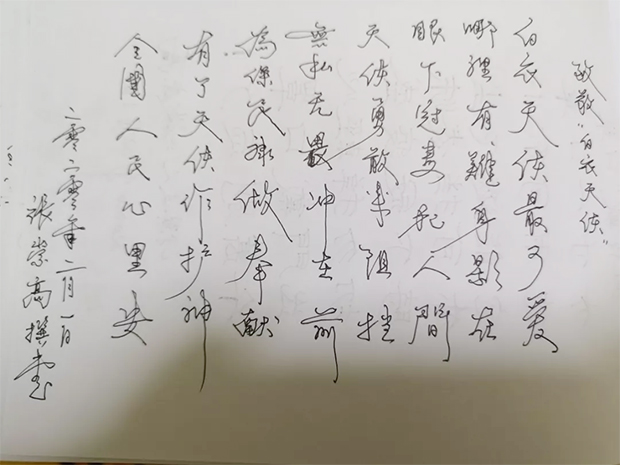 致敬“白衣天使”
白衣天使最可爱
哪裡有難身影在
眼下冠毒犯人間
天使勇敢来阻挡
無私无畏冲在前
為保民康做奉献
有了天使作护神
全國人民心里安
二零二零年二月一日
張崇高撰書